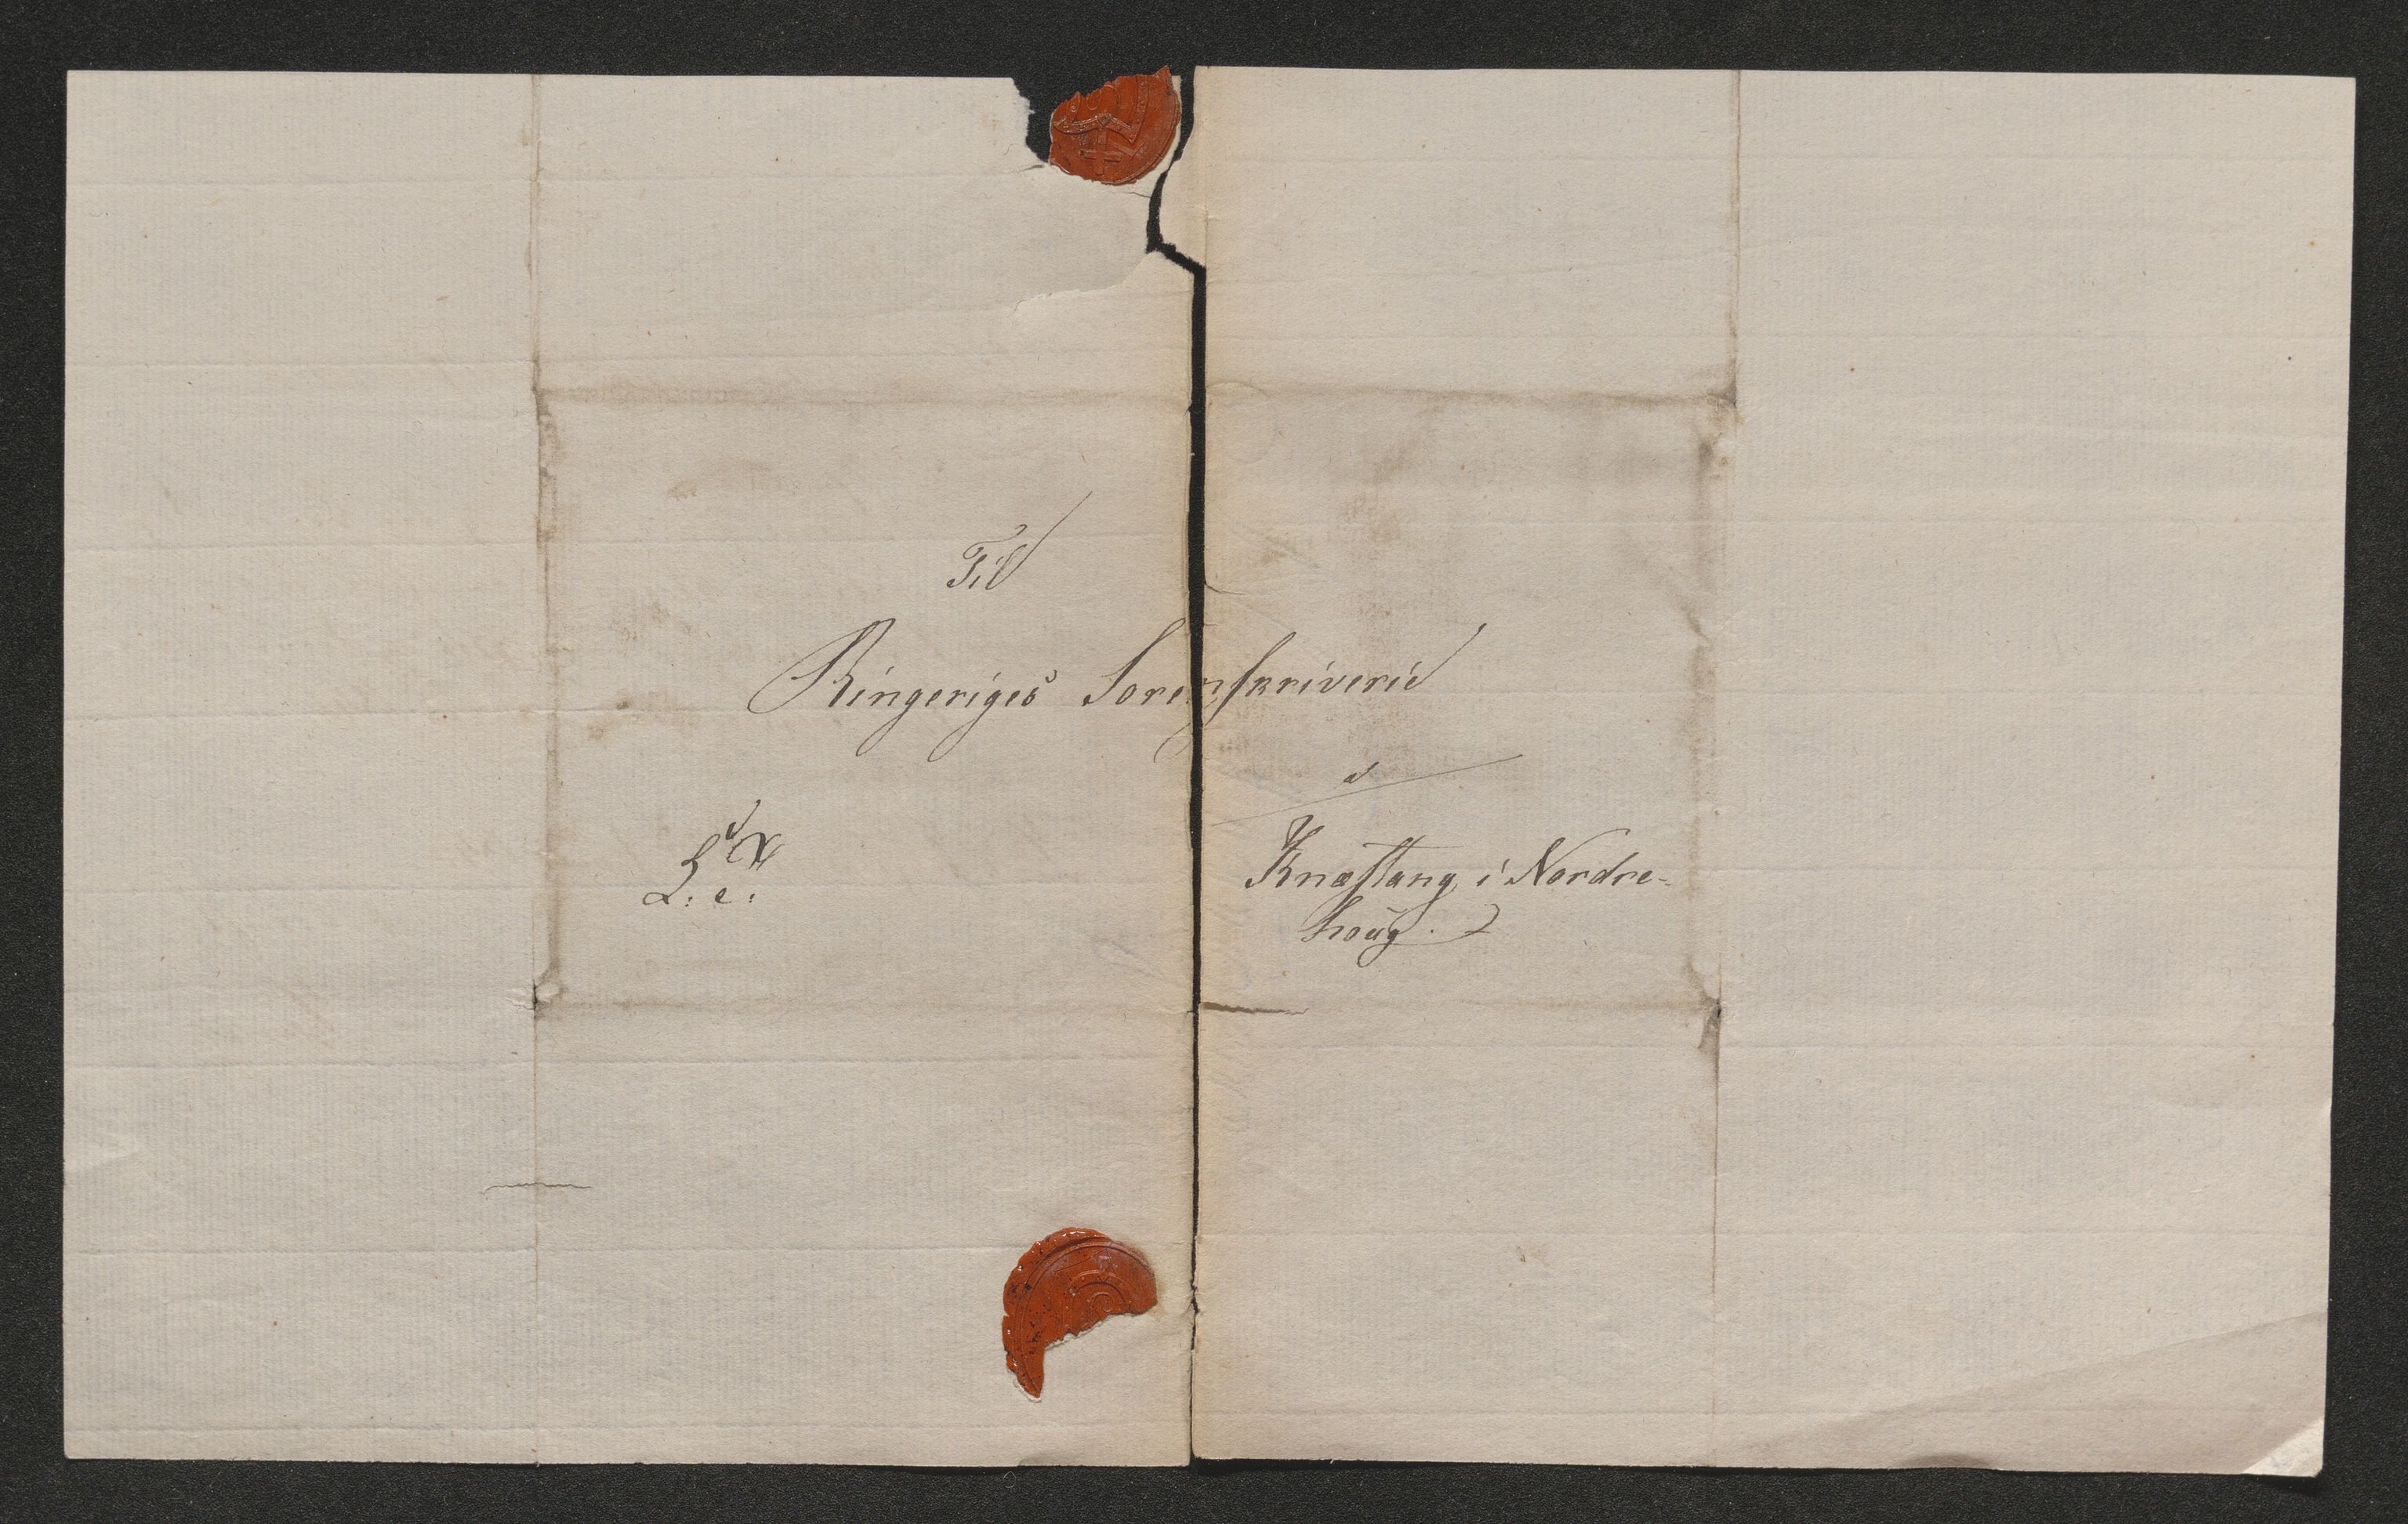 Til
Ringeriges Sorenskriverie
L. e.
Knæstang i Nordre-
houg.